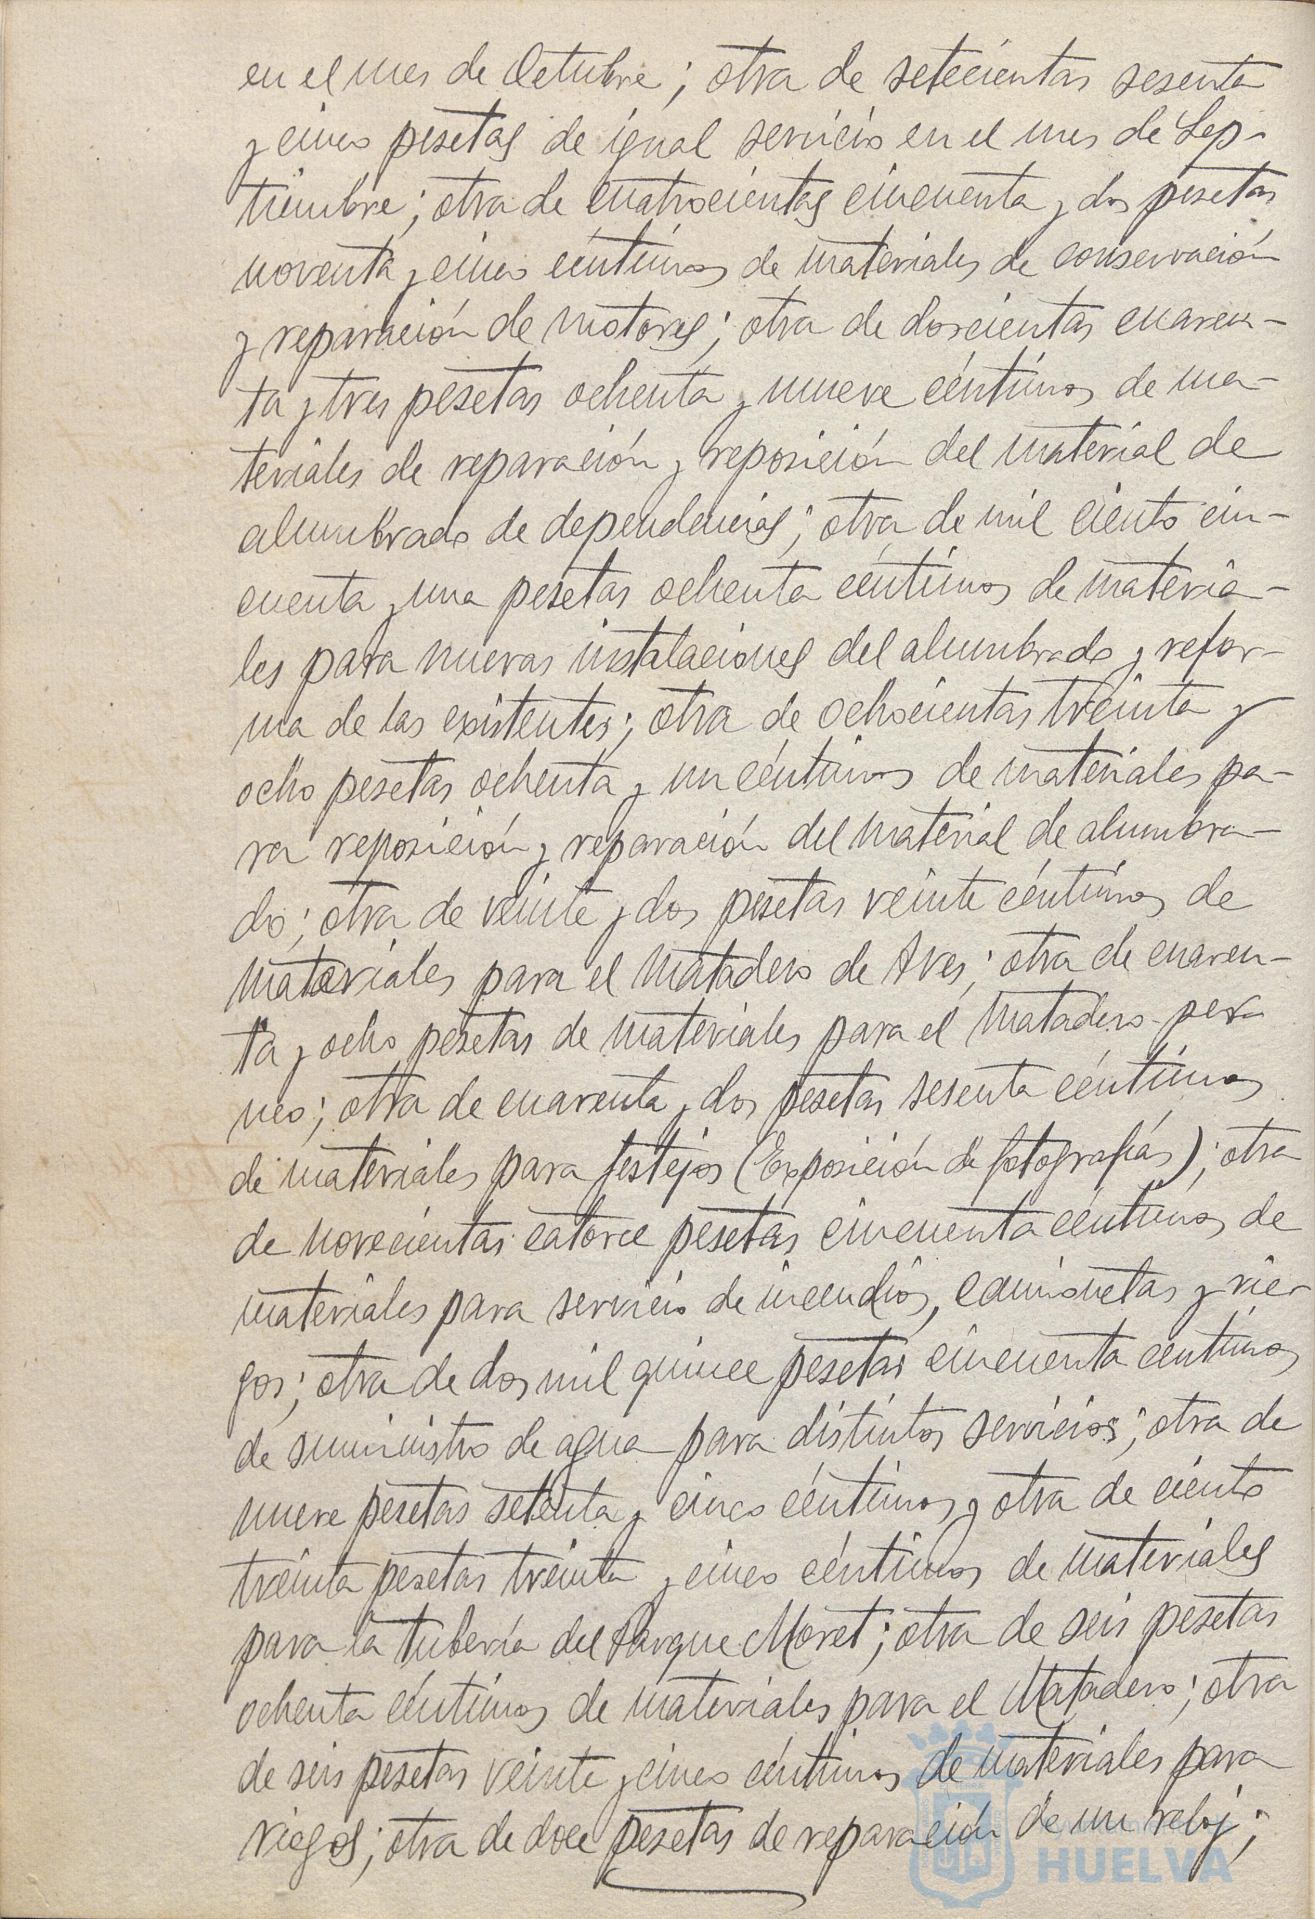 en el mes de Octubre; otra de setecientas sesenta
y cinco pesetas de igual servicio en el mes de Sep-
tiembre; otra de cuatrocientas cincuenta y dos pesetas
noventa y cinco céntimos de materiales de conservación
y reparación de motores; otra de doscientas cuaren-
ta y tres pesetas ochenta y nueve céntimos de ma-
teriales de reparación y reposición del material de
alumbrado de dependencias; otra de mil ciento cin-
cuenta y una pesetas ochenta céntimos de materia-
les para nuevas instalaciones del alumbrado y refor-
ma de las existentes; otra de ochocientas treinta y
ocho pesetas ochenta y un céntimos de materiales pa-
ra reposición y reparación del material de alumbra-
do; otra de veinte y dos pesetas veinte céntimos de
materiales para el Matadero de Aves; otra de cuaren-
ta y ocho pesetas de materiales para el Matadero
neo; otra de cuarenta y dos pesetas sesenta céntimos
de materiales para festejos (Exposición de fotografías); otra
de novecientas catorce pesetas cincuenta céntimos de
materiales para servicio de incendios, camionetas y rie-
gos; otra de dos mil quince pesetas cincuenta centimos
de suministro de agua para distintos servicios; otra de
nueve pesetas setenta y cinco céntimos y otra de ciento
treinta pesetas treinta y cinco céntimos de materiales
para la tubería del Parque Moret; otra de seis pesetas
ochenta céntimos de materiales para el Matadero; otra
de seis pesetas veinte y cinco céntimos de materiales para
riegos; otra de doce pesetas de reparación de un reloj;
HUELVA